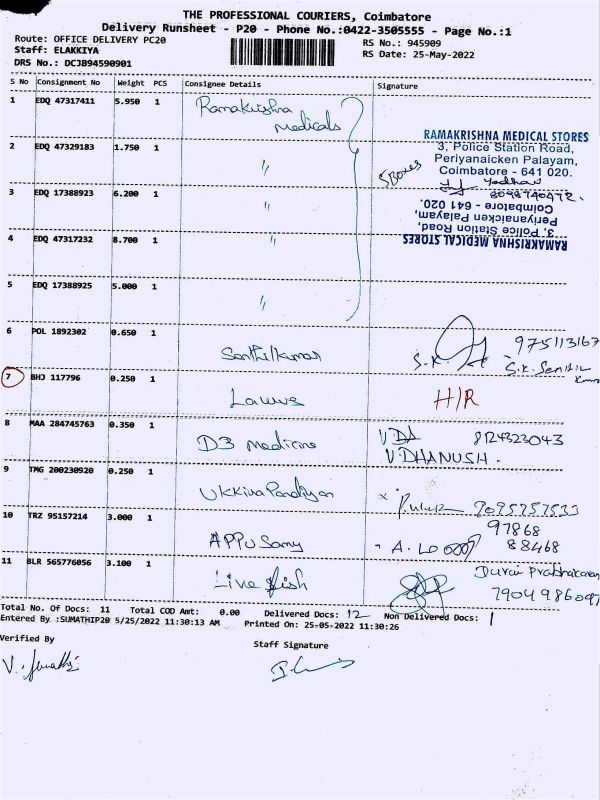 THE PROFESSIONAL COURIERS, Coimbatore
Delivery Runsheet - P20 - Phone No.:0422-3505555 - Page No.:1
Route: OFFICE DELIVERY PC20
RS No.: 945909
Staff: ELAKKIYA
RS Date: 25-May-2022
DRS No.: DCJB94590901
S No Consignment No Weight PCS Consignee Details Signature
1 EDQ 47317411 5.950 1 Ramakrishna
Medicals
RAMAKRISHNA MEDICAL STORES
3, Police Station Road,
Periyanaicken Palayam,
Coimbatore - 641 020.
2 EDQ 47329183 1.750 1 〃
5 Boxes
3 EDQ 17388923 6.200 1 〃
RAMAKRISHNA MEDICAL STORES
3, Police Station Road,
Periyanaicken Palayam,
Coimbatore - 641 020.
4 EDQ 47317232 8.700 1 〃
5 EDQ 17388925 5.000 1 〃
6 POL 1892302 0.650 1 Senthilkumar S.K. 975113167
S.K. Senthil
7 BHJ 117796 0.250 1 H/R
8 MAA 284745763 0.350 1 D3 medicine 8124323043
V DHANUSH.
9 TMG 200230920 0.250 1 Ukkira Pandiyan x 9095757533
10 TRZ 95157214 3.000 1 APPU Samy 97868
88468
11 BLR 565776056 3.100 1 Live fish Durai Prabhakaran
7904986097
Total No. Of Docs: 11 Total COD Amt: 0.00 Delivered Docs: 12 Non Delivered Docs: 1
Entered By :SUMATHIP20 5/25/2022 11:30:13 AM Printed On: 25-05-2022 11:30:26
Verified By
Staff Signature